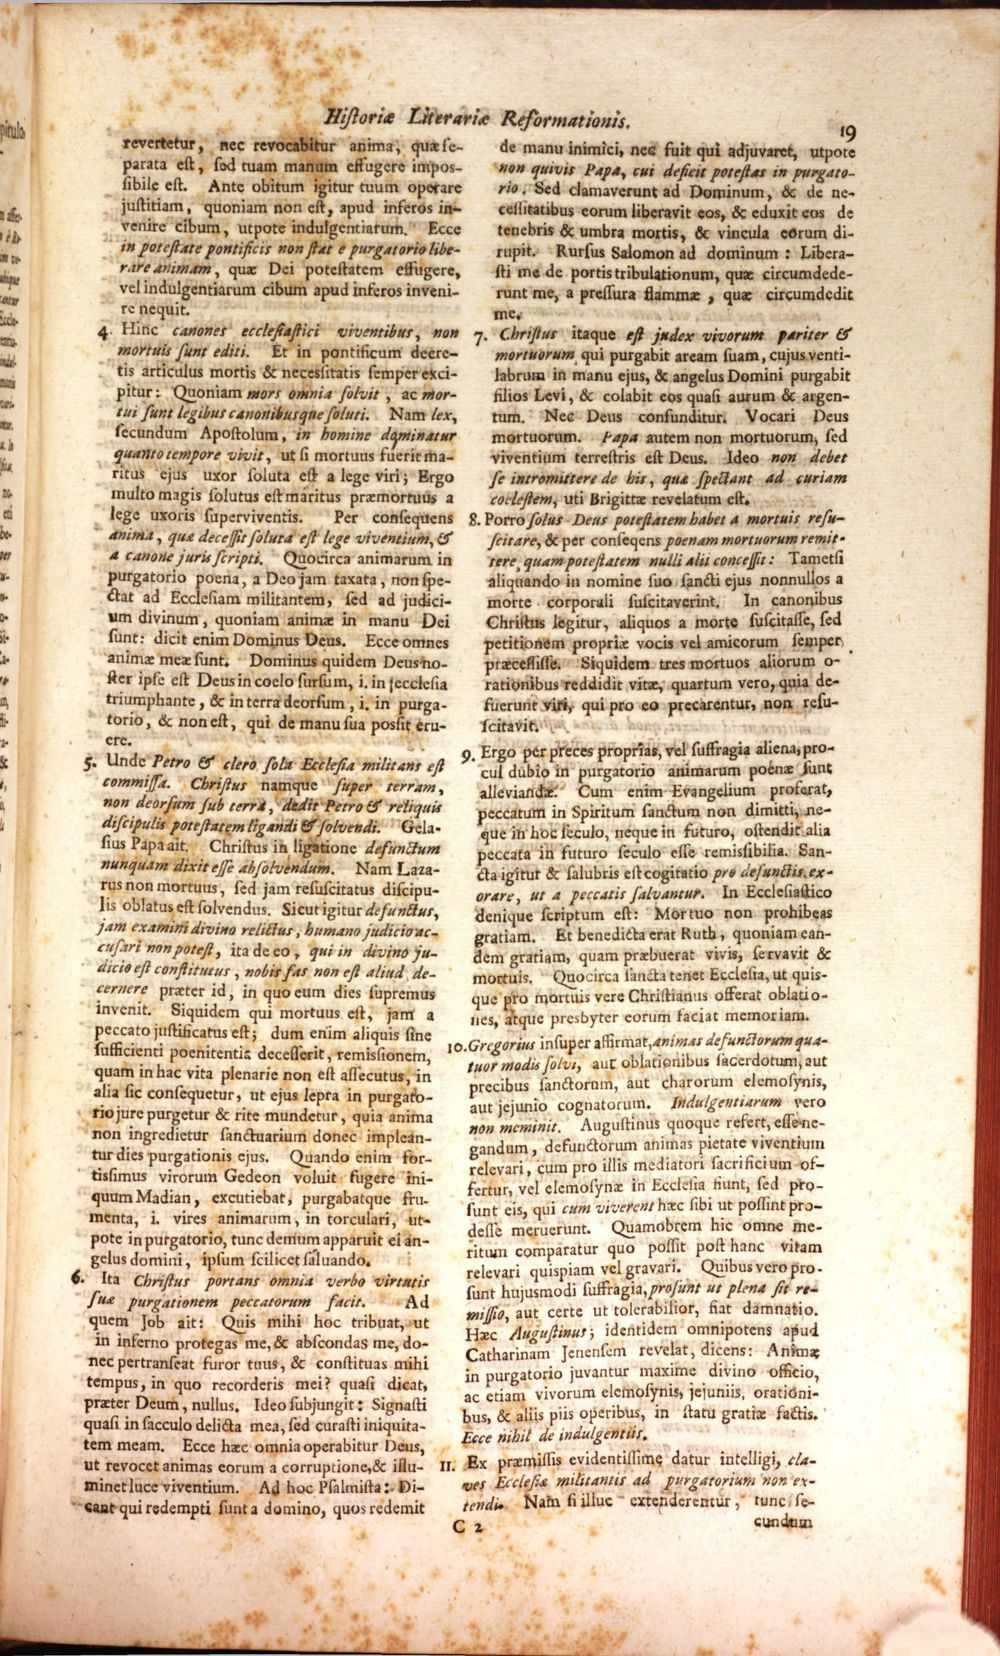 Historiæ Literariæ Reformationis.
19
revertetur, nec revocabitur anima, quæ se-
parata est, sed tuam manum effugere impos-
sibile est. Ante obitum igitur tuum operare
justitiam, quoniam non est, apud inferos in-
venire cibum, utpote indulgentiarum. Ecce
in potestate pontificis non stat e purgatorio libe-
rare animam, quæ Dei potestatem effugere,
vel indulgentiarum cibum apud inferos inveni-
re nequit.
4. Hinc canones ecclesiastici viventibus, non
mortuis sunt editi. Et in pontificum decre-
tis articulus mortis & necessitatis semper exci-
pitur: Quoniam mors omnia solvit, ac mor-
tui sunt legibus canonibusque soluti. Nam lex,
secundum Apostolum, in homine dominatur
quanto tempore vivit, ut si mortuus fuerit ma-
ritus ejus uxor soluta est a lege viri; Ergo
multo magis solutus est maritus præmortuus a
lege uxoris superviventis. Per consequens
anima, quæ decessit soluta est lege viventium, &
a canone juris scripti. Quocirca animarum in
purgatorio poena, a Deo jam taxata, non spe-
ctat ad Ecclesiam militantem, sed ad judici-
um divinum, quoniam animæ in manu Dei
sunt: dicit enim Dominus Deus. Ecce omnes
animæ meæ sunt. Dominus quidem Deus no-
ster ipse est Deus in coelo sursum, i. in ecclesia
triumphante, & in terra deorsum, i. in purga-
torio, & non est, qui de manu sua possit eru-
ere.
5. Unde Petro & clero sola Ecclesia militans est
commissa. Christus namque super terram,
non deorsum sub terra, dedit Petro & reliquis
discipulis potestatem ligandi & solvendi. Gela-
sius Papa ait. Christus in ligatione defunctum
nunquam dixit esse absolvendum. Nam Laza-
rus non mortuus, sed jam resuscitatus discipu-
lis oblatus est solvendus. Sicut igitur defunctus,
jam examini divino relictus, humano judicio ac-
cusari non potest, ita de eo, qui in divino ju-
dicio est constitutus, nobis fas non est aliud de-
cernere præter id, in quo eum dies supremus
invenit. Siquidem qui mortuus est, jam a
peccato justificatus est; dum enim aliquis sine
sufficienti poenitentia decesserit, remissionem,
quam in hac vita plenarie non est assecutus, in
alia sic consequetur, ut ejus lepra in purgato-
rio jure purgetur & rite mundetur, quia anima
non ingredietur sanctuarium donec implean-
tur dies purgationis ejus. Quando enim for-
tissimus virorum Gedeon voluit fugere ini-
quum Madian, excutiebat, purgabatque fru-
menta, i. vires animarum, in torculari, ut-
pote in purgatorio, tunc demum apparuit ei an-
gelus domini, ipsum scilicet salvando.
6. Ita Christus portans omnia verbo virtutis
suæ purgationem peccatorum facit. Ad
quem Job ait: Quis mihi hoc tribuat, ut
in inferno protegas me, & abscondas me, do-
nec pertranseat furor tuus, & constituas mihi
tempus, in quo recorderis mei? quasi dicat,
præter Deum, nullus. Ideo subjungit: Signasti
quasi in sacculo delicta mea, sed curasti iniquita-
tem meam. Ecce hæc omnia operabitur Deus,
ut revocet animas eorum a corruptione, & illu-
minet luce viventium. Ad hoc Psalmista: Di-
cant qui redempti sunt a domino, quos redemit
de manu inimici, nec fuit qui adjuvaret, utpote
non quivis Papa, cui deficit potestas in purgato-
rio. Sed clamaverunt ad Dominum, & de ne-
cessitatibus eorum liberavit eos, & eduxit eos de
tenebris & umbra mortis, & vincula eorum di-
rupit. Rursus Salomon ad dominum: Libera-
sti me de portis tribulationum, quæ circumdede-
runt me, a pressura flammæ, quæ circumdedit
me.
7. Christus itaque est judex vivorum pariter &
mortuorum qui purgabit aream suam, cujus venti-
labrum in manu ejus, & angelus Domini purgabit
filios Levi, & colabit eos quasi aurum & argen-
tum. Nec Deus confunditur. Vocari Deus
mortuorum. Papa autem non mortuorum, sed
viventium terrestris est Deus. Ideo non debet
se intromittere de his, quæ spectant ad curiam
coelestem, uti Brigittæ revelatum est.
8. Porro solus Deus potestatem habet a mortuis resu-
scitare, & per conseqens poenam mortuorum remit-
tere, quam potestatem nulli alii concessit: Tametsi
aliquando in nomine suo sancti ejus nonnullos a
morte corporali suscitaverint. In canonibus
Christus legitur, aliquos a morte suscitasse, sed
petitionem propriæ vocis vel amicorum semper
præcessisse. Siquidem tres mortuos aliorum o-
rationibus reddidit vitæ, quartum vero, quia de-
fuerunt viri, qui pro eo precarentur, non resu-
scitavit.
9. Ergo per preces proprias, vel suffragia aliena, pro-
cul dubio in purgatorio animarum poenæ sunt
alleviandæ. Cum enim Evangelium proferat,
peccatum in Spiritum sanctum non dimitti, ne-
que in hoc seculo, neque in futuro, ostendit alia
peccata in futuro seculo esse remissibilia. San-
cta igitur & salubris est cogitatio pro defunctis ex-
orare, ut a peccatis salvantur. In Ecclesiastico
denique scriptum est: Mortuo non prohibeas
gratiam. Et benedicta erat Ruth, quoniam ean-
dem gratiam, quam præbuerat vivis, servavit &
mortuis. Quocirca sancta tenet Ecclesia, ut quis-
que pro mortuis vere Christianus offerat oblatio-
nes, atque presbyter eorum faciat memoriam.
10. Gregorius insuper affirmat, animas defunctorum qua-
tuor modis solvi, aut oblationibus sacerdotum, aut
precibus sanctorum, aut charorum elemosynis,
aut jejunio cognatorum. Indulgentiarum vero
non meminit. Augustinus quoque refert, esse ne-
gandum, defunctorum animas pietate viventium
relevari, cum pro illis mediatori sacrificium of-
fertur, vel elemosynæ in Ecclesia fiunt, sed pro-
sunt eis, qui cum viverent hæc sibi ut possint pro-
desse meruerunt. Quamobrem hic omne me-
ritum comparatur quo possit post hanc vitam
relevari quispiam vel gravari. Quibus vero pro-
sunt hujusmodi suffragia, prosunt ut plena sit re-
missio, aut certe ut tolerabilior, fiat damnatio.
Hæc Augustinus; identidem omnipotens apud
Catharinam Jenensem revelat, dicens: Animæ
in purgatorio juvantur maxime divino officio,
ac etiam vivorum elemosynis, jejuniis, orationi-
bus, & aliis piis operibus, in statu gratiæ factis.
Ecce nihil de indulgentiis.
11. Ex præmissis evidentissime datur intelligi, cla-
ves Ecclesiæ militantis ad purgatorium non ex-
tendi. Nam si illuc extenderentur, tunc se-
C 2
cundum